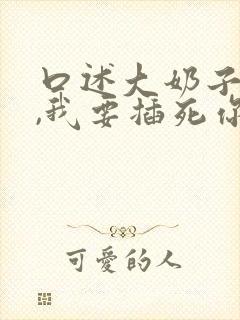 口述大奶子
,我要插死你
可爱的人